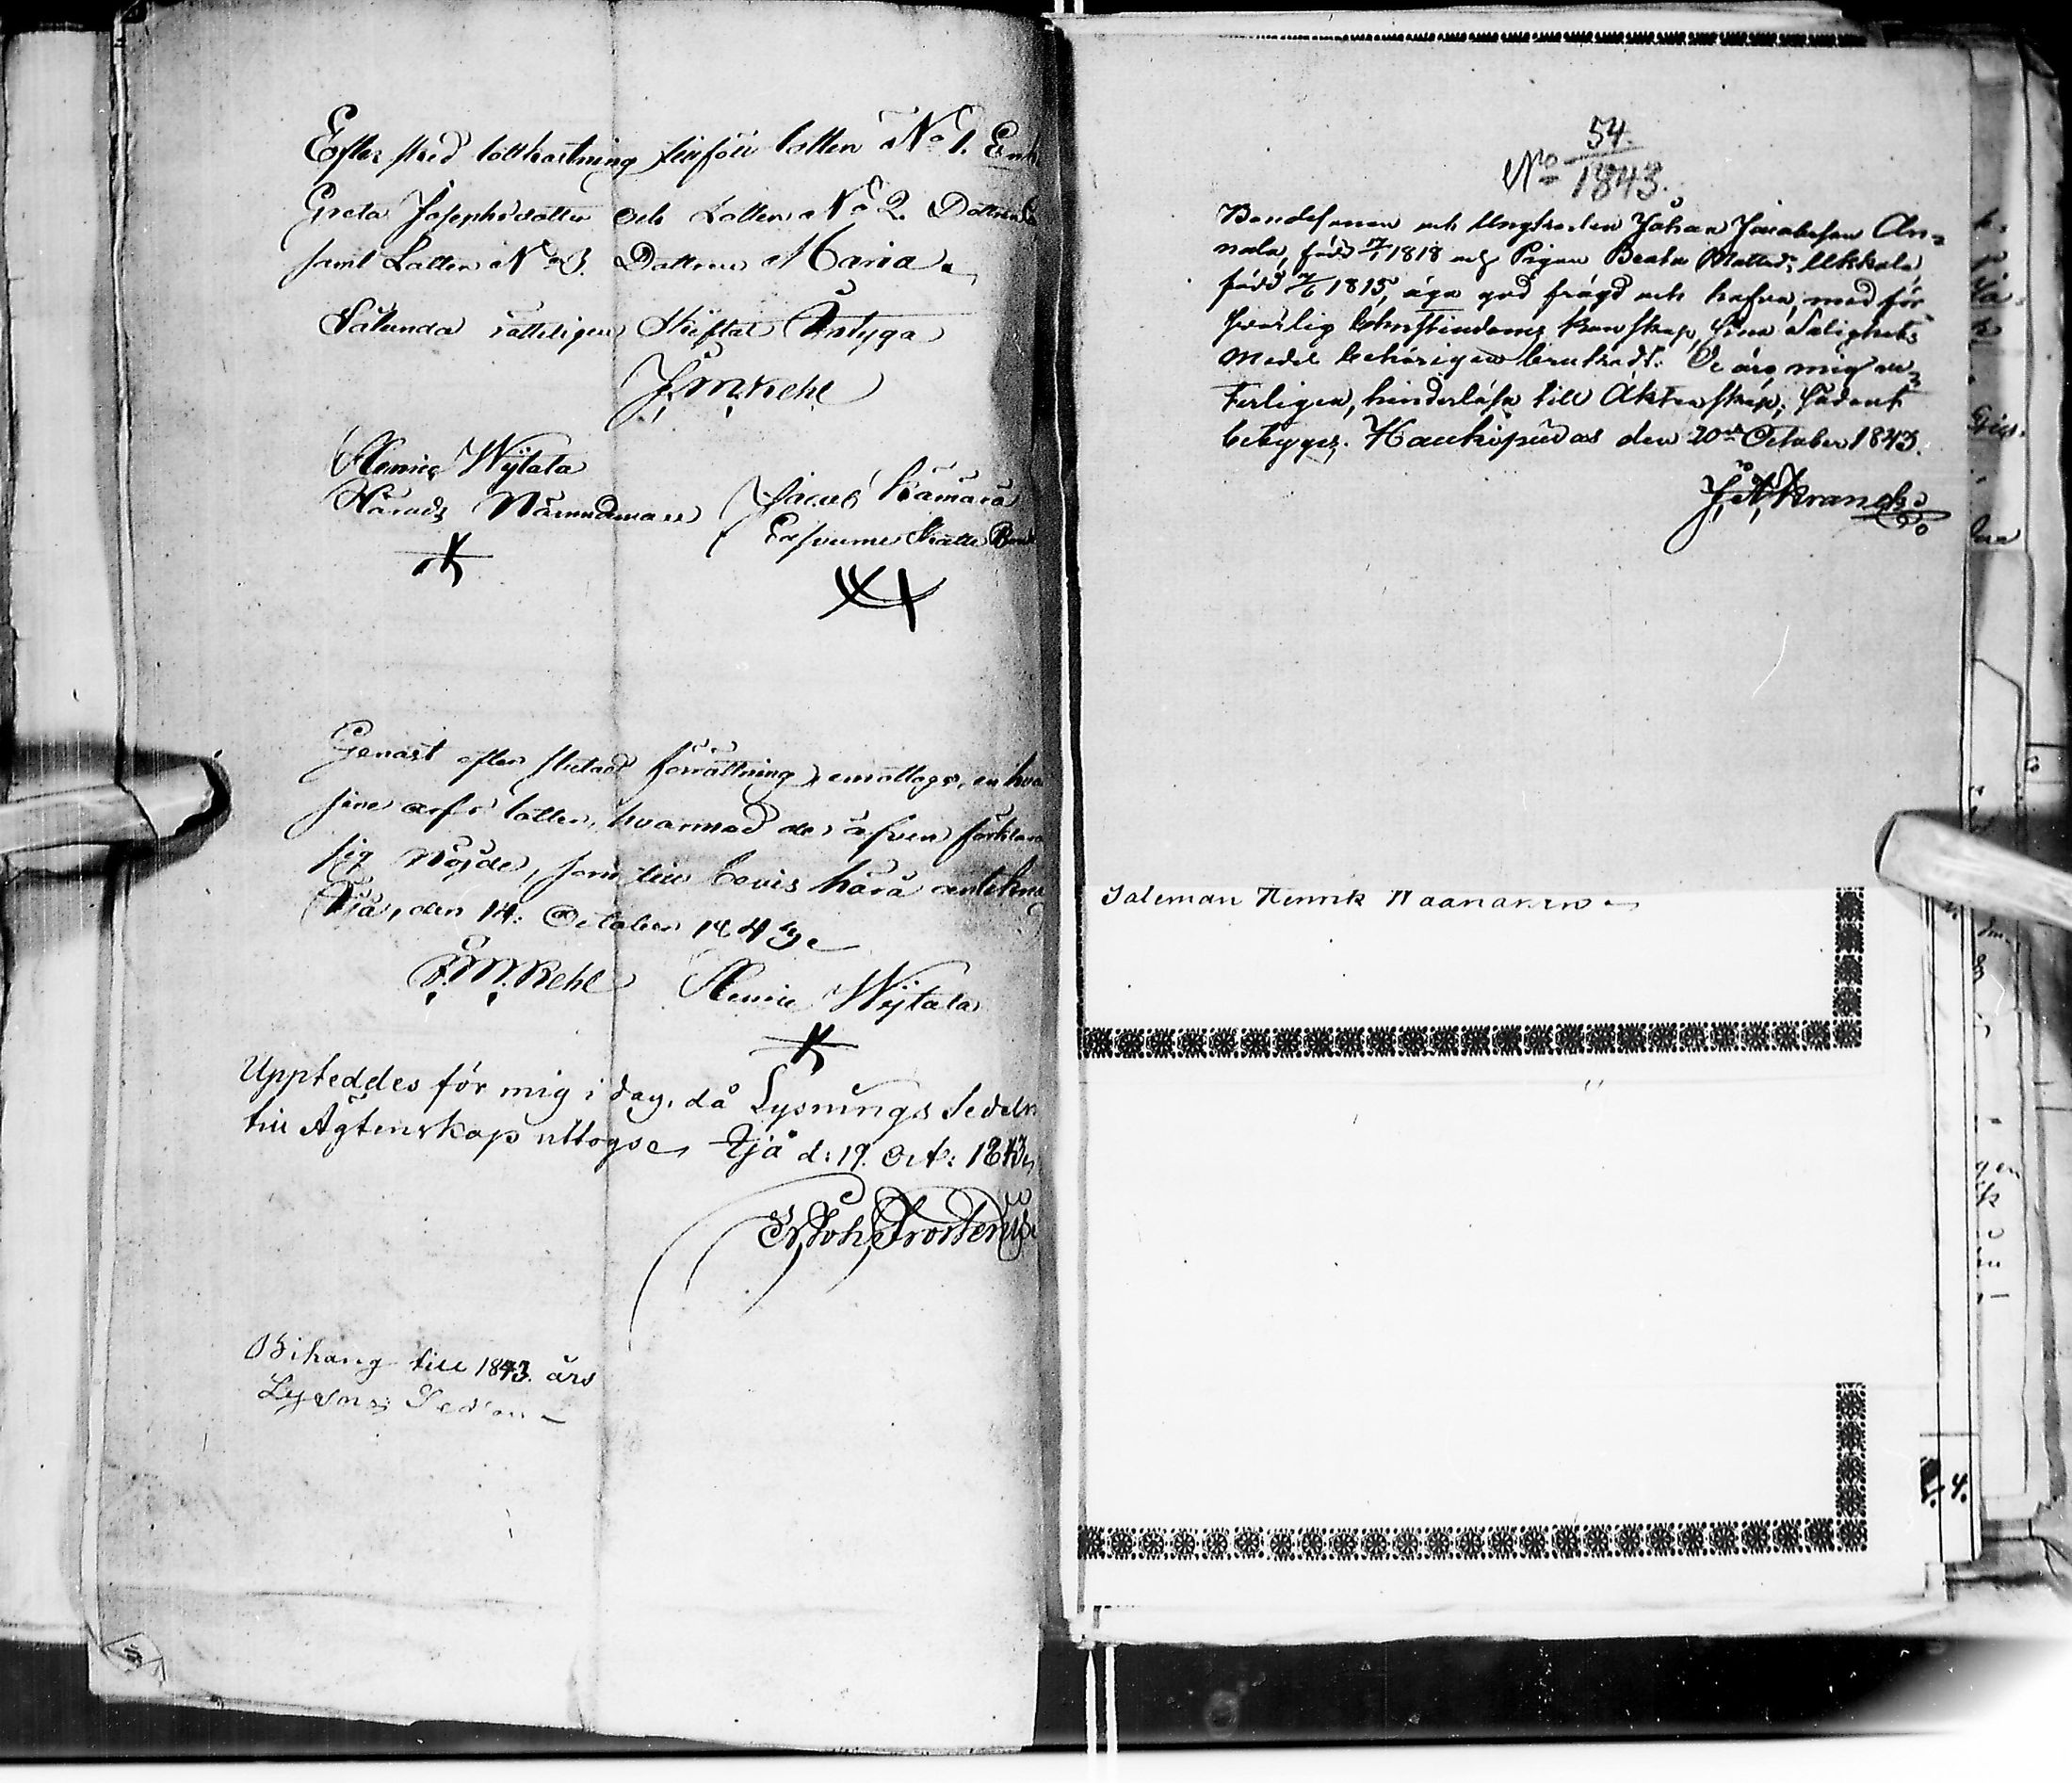 Efter sked lottkastning tillföll lotten No 1. Enk
Greta Josephsdotter och Lotten No 2. Dottren
samt Lotten No 3. Dottren Maria.
Sålunda rätteligen Skiftat Intyga
J. M. Kehl
Henric Wÿtala
Härads Nämndeman
Jacob Kämärä
Skatte Bonde
Genast efter slutad förrättning emottogs, en hvar
sine arfs lotter, hvarmed de äfven förklara
sig nöjde, som till bevis härå antekna
Ijå, den 14: October 1843
J. M. Kehl Henric Wÿtala
Uppteddes för mig i dag, då Lysnings Sedeln
till Ägtenskap uttogs. Ijå d: 19. Oct: 1843
Joh. Frosterus
Bihang till 1843 års
Lysn: Sedlar
54.
No 1843.
Bondesonen och Ungkarlen Johan Jacobsson An=
nala, född 1818 och Pigan Beata Mattsdr Ukkola,
född 1815, äga god frägd och hafva, med för
svarlig Christendoms kunskap, sina Salighets
Medel behörigen brukadt. De äro, mig ve=
terligen, hinderlösa till Äktenskap; sådant
betygas. Haukipudas den 20de October 1843.
J. A. Kranck
Taleman Henrik Naananen
4.